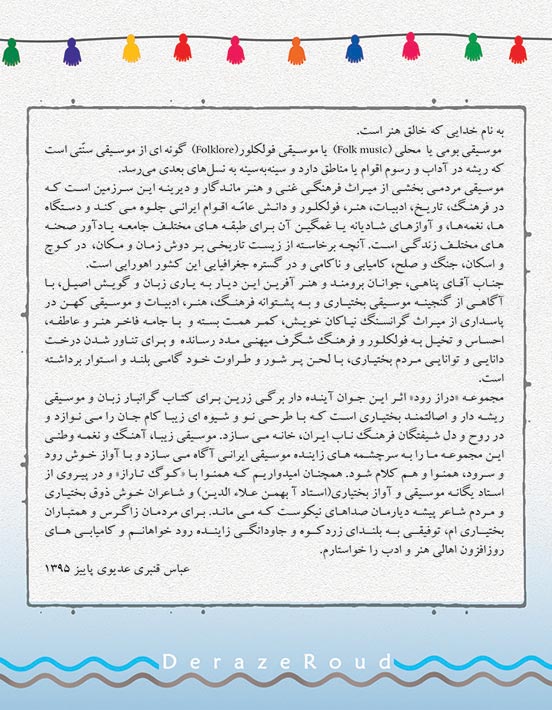 به نام خدایی که خالق هنر است.
موسیقی بومی یا محلی (Folk music) یا موسیقی فولکلور(Folklore) گونه ای از موسیقی سنّتی است
که ریشه در آداب و رسوم اقوام یا مناطق دارد و سینه‌به‌سینه به نسل‌های بعدی می‌رسد.
موسیقی مردمی بخشی از میراث فرهنگی غنی و هنر ماندگار و دیرینه این سرزمین است که
در فرهنگ، تاریخ، ادبیات، هنر، فولکلور و دانش عامّه اقوام ایرانی جلوه می کند و دستگاه
ها، نغمه‌ها، و آوازهای شادیانه یا غمگین آن برای طبقه های مختلف جامعه یادآور صحنه
های مختلف زندگی است. آنچه برخاسته از زیست تاریخی بر دوش زمان و مکان، در کوچ
و اسکان، جنگ و صلح، کامیابی و ناکامی و در گستره جغرافیایی این کشور اهورایی است.
جناب آقای پناهی، جوانان برومند و هنر آفرین این دیار به یاری زبان و گویش اصیل، با
آگاهی از گنجینه موسیقی بختیاری و به پشتوانه فرهنگ، هنر، ادبیات و موسیقی کهن در
پاسداری از میراث گرانسنگ نیاکان خویش، کمر همت بسته و با جامه فاخر هنر و عاطفه،
احساس و تخیل به فولکلور و فرهنگ شگرف میهنی مدد رسانده و برای تناور شدن درخت
دانایی و توانایی مردم بختیاری، با لحن پر شور و طراوت خود گامی بلند و استوار برداشته
است.
مجموعه «دراز رود» اثر این جوان آینده دار برگی زرین برای کتاب گرانبار زبان و موسیقی
ریشه دار و اصالتمند بختیاری است که با طرحی نو و شیوه ای زیبا کام جان را می نوازد و
در روح و دل شیفتگان فرهنگ ناب ایران، خانه می سازد. موسیقی زیبا، آهنگ و نغمه وطنی
این مجموعه ما را به سرچشمه های زاینده موسیقی ایرانی آگاه می سازد و با آواز خوش رود
و سرود، همنوا و هم کلام شود. همچنان امیدواریم که همنوا با «کوگ تاراز» و در پیروی از
استاد یگانه موسیقی و آواز بختیاری(استاد آ بهمن علاء الدین) و شاعران خوش ذوق بختیاری
و مردم شاعر پیشه دیارمان صداهای نیکوست که می ماند. برای مردمان زاگرس و همتباران
بختیاری ام، توفیقی به بلندای زردکوه و جاودانگی زاینده رود خواهانم و کامیابی های
روزافزون اهالی هنر و ادب را خواستارم.
عباس قنبری عدیوی پاییز ۱۳۹۵
DerazeRoud